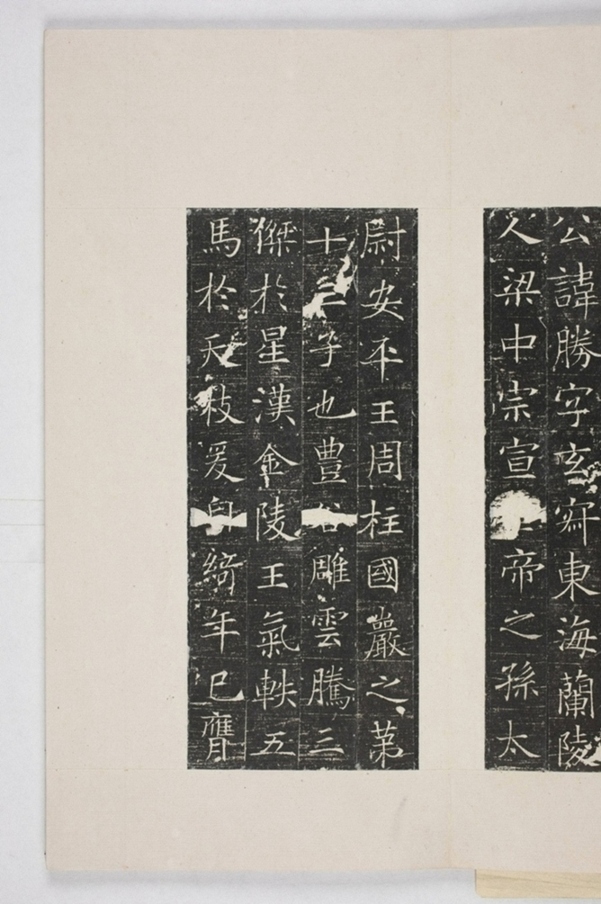 公諱勝字玄寂東海蘭陵
人梁中宗宣帝之孫太
尉安平王周柱國巖之第
十子也豐雕雲騰三
傑於星漢金陵王氣軼五
馬於天枝爰自綺年已膺